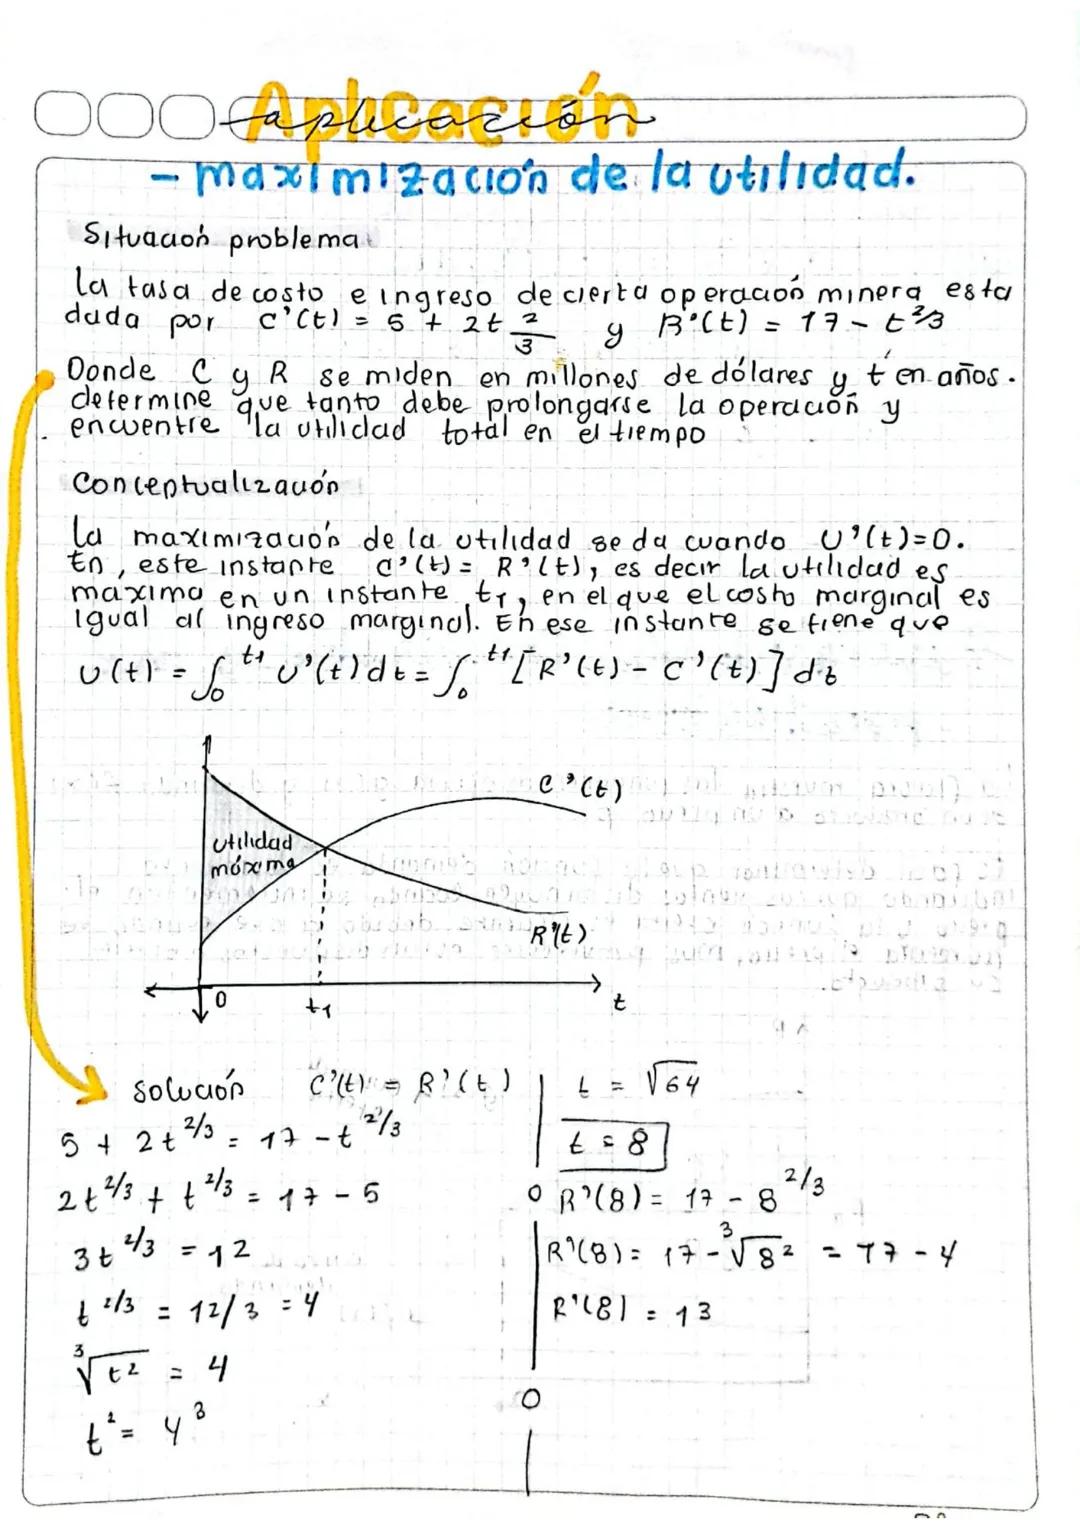 Aplicación
aplicación
- maximización de la utilidad.
Situación problema
La tasa de costo e ingreso de cierta operación minera esta
dada por C'(t) = 5 + 2t 2/3 y R'(t) = 17 - t^2/3
Donde C y R se miden en millones de dólares y t en años.
determine que tanto debe prolongarse la operación y
encuentre la utilidad total en el tiempo
Conceptualización
La maximización de la utilidad se da cuando U'(t)=0.
En, este instante C'(t) = R'(t), es decir la utilidad es
maxima en un instante t1, en el que el costo marginal es
igual al ingreso marginal. En ese instante se tiene que
U(t) = ∫₀^t1 U'(t)dt = ∫₀^t1 [R'(t) - C'(t)] dt
C'(t)
utilidad
máxima
R'(t)
0
t1
t
Solución C'(t) = R'(t)
5 + 2t^2/3 = 17 - t^2/3
2t^2/3 + t^2/3 = 17 - 5
3t^2/3 = 12
t^2/3 = 12/3 = 4
∛t² = 4
t² = 4³
t = √64
t = 8
R'(8) = 17 - 8^2/3
R'(8) = 17 - ∛8² = 17 - 4
R'(8) = 13